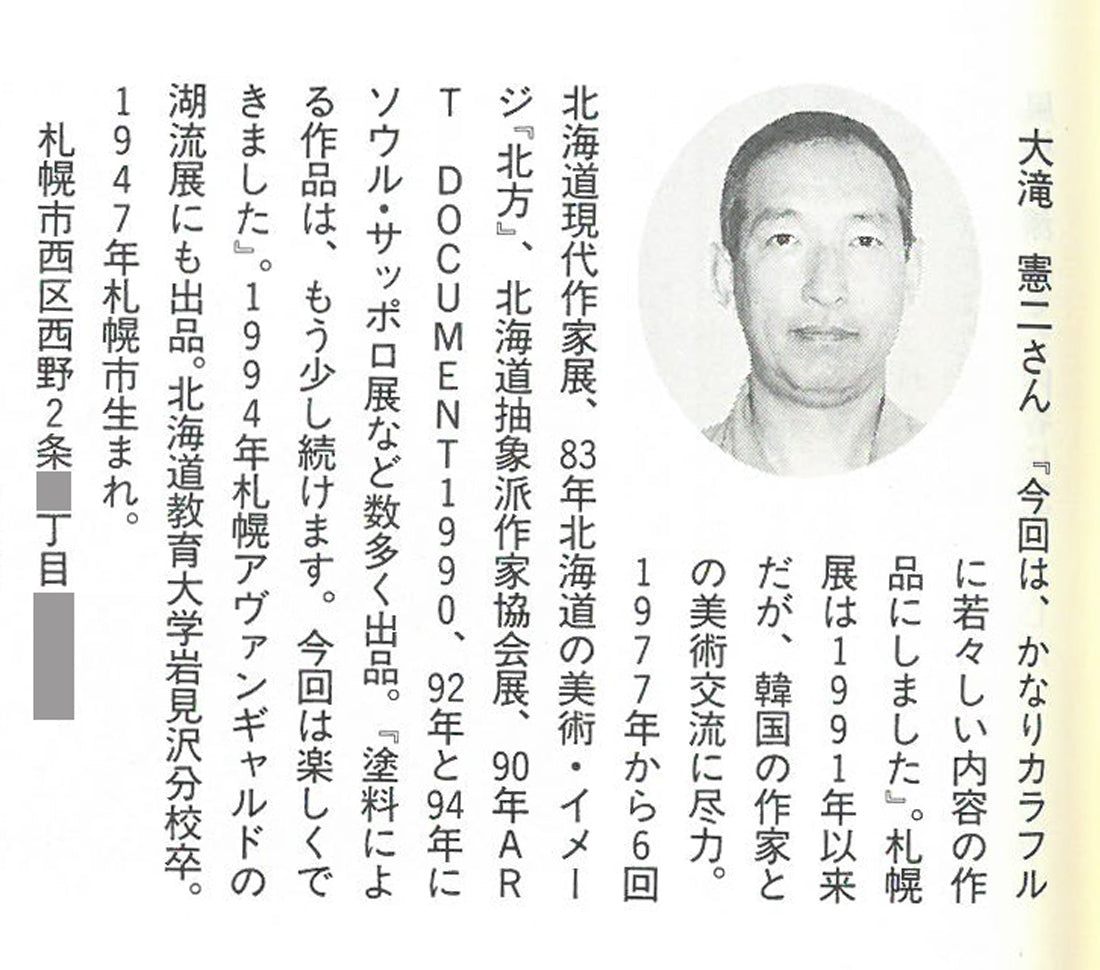 大滝 憲二さん 『今回は、かなりカラフル
に若々しい内容の作
品にしました』。札幌
展は1991年以来
だが、韓国の作家と
の美術交流に尽力。
1977年から6回
北海道現代作家展、83年北海道の美術・イメー
ジ『北方』、北海道抽象派作家協会展、90年AR
T DOCUMENT1990、92年と94年に
ソウル・サッポロ展など数多く出品。『塗料によ
る作品は、もう少し続けます。今回は楽しくで
きました』。1994年札幌アヴァンギャルドの
湖流展にも出品。北海道教育大学岩見沢分校卒。
1947年札幌市生まれ。
札幌市西区西野2条 丁目